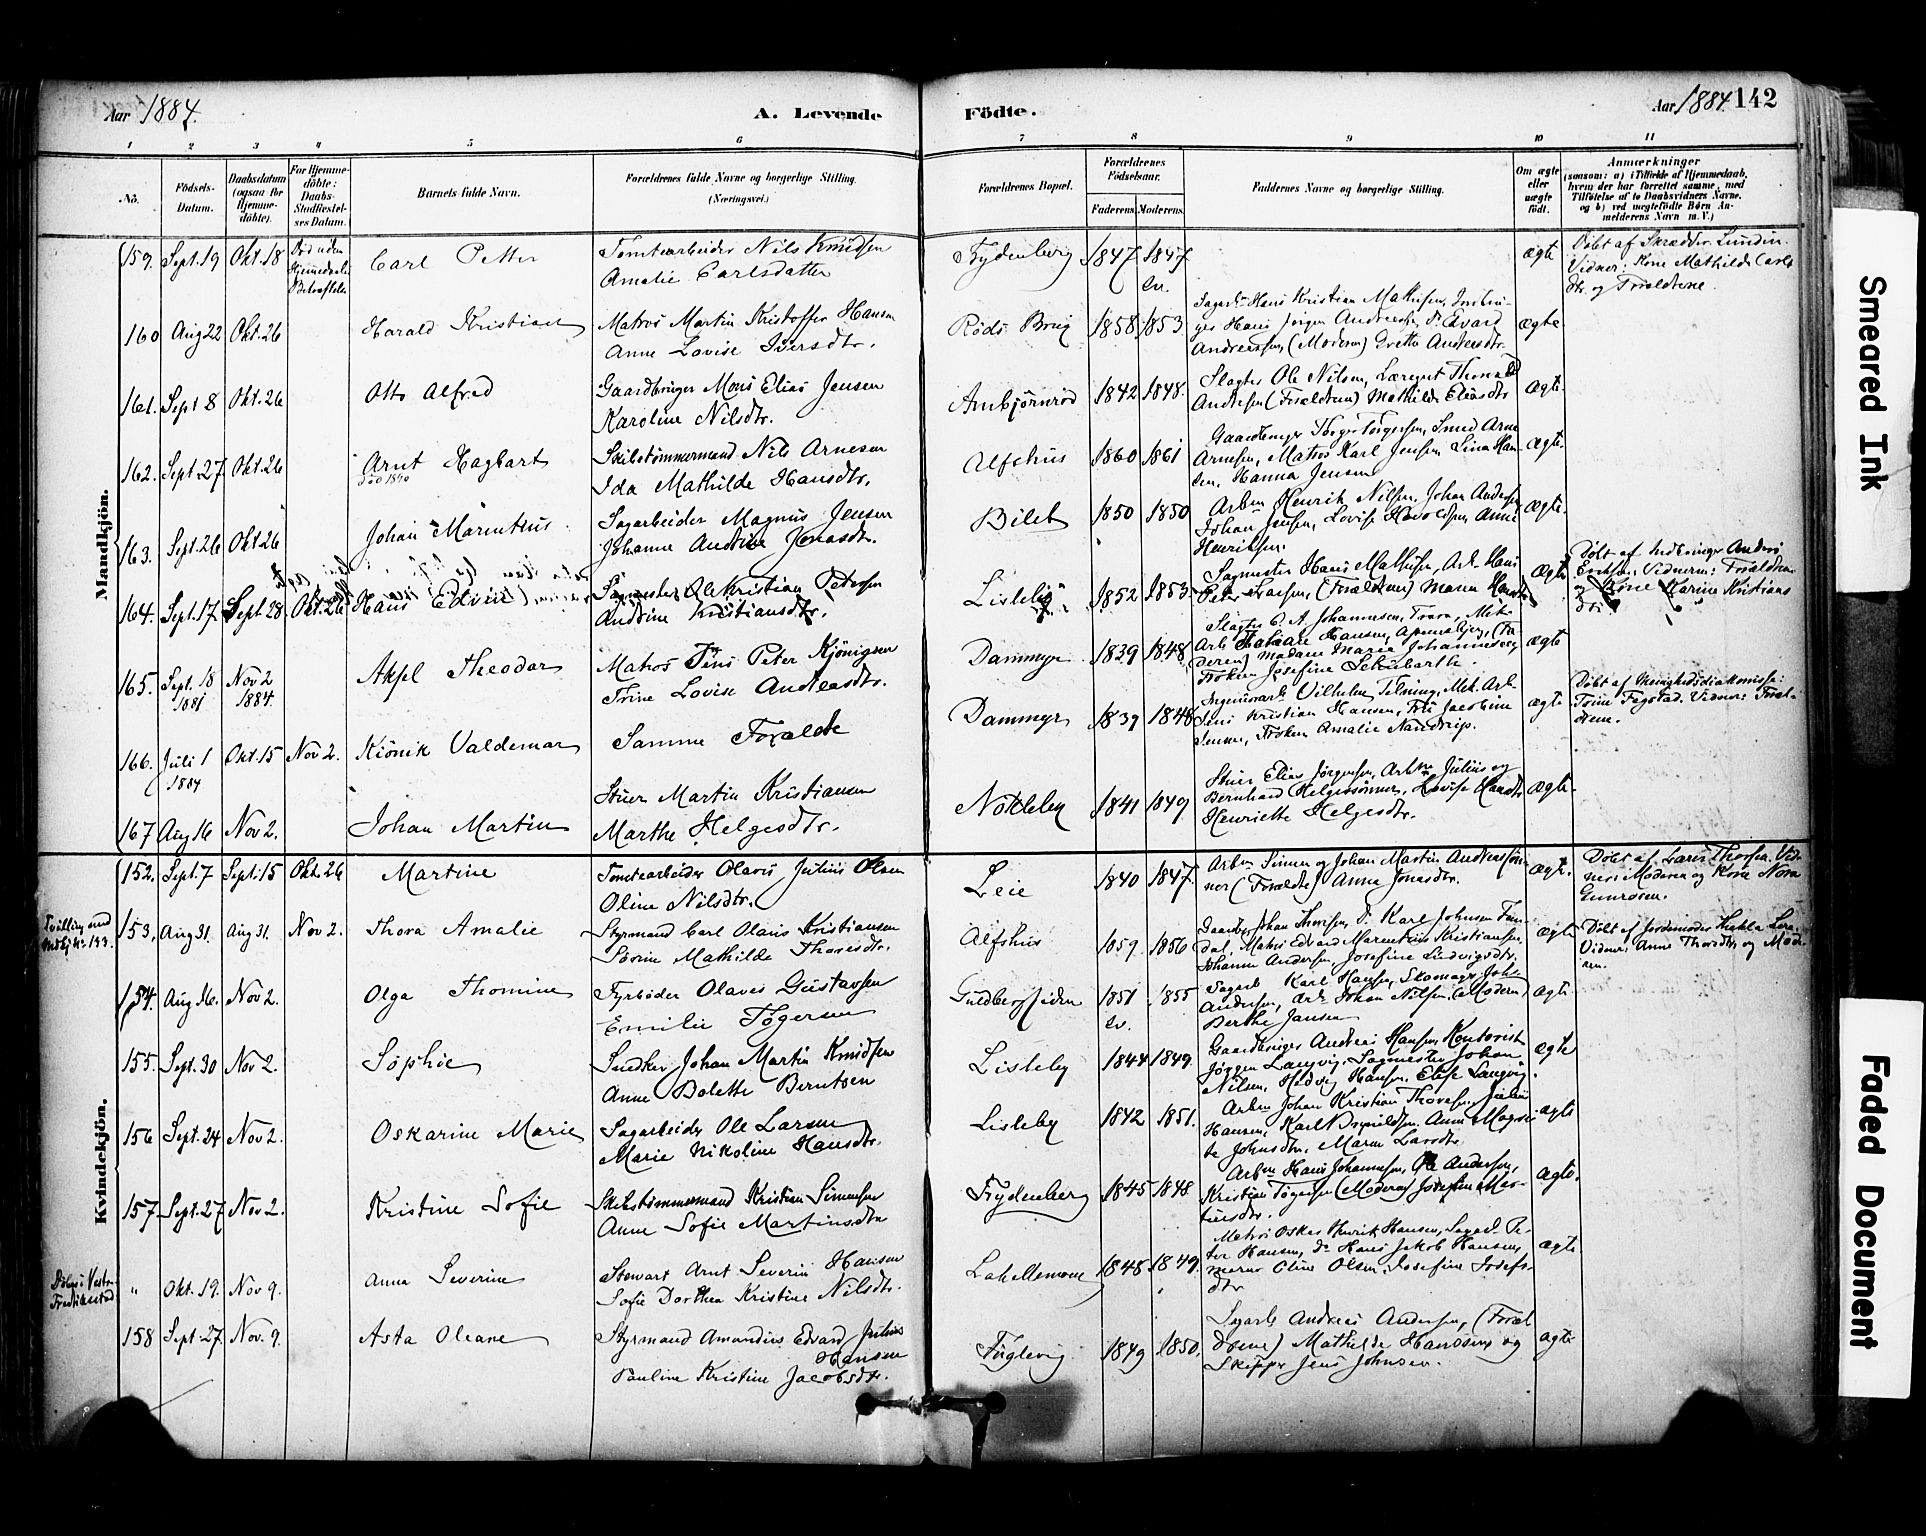 Aar 1884.
A. Levende
Fødte.
Aar 1884. 142
1 2 3 4 5 6 7 8 9 10 11
No.
Fødsels-Datum.
Daabsdatum (ogsaa for Hjemmedøbte).
For Hjemmedøbte: Daabs-Stadfæstelses Datum.
Barnets fulde Navn.
Forældrenes fulde Navne og borgerlige Stilling. (Næringsvei.)
Forældrenes Bopæl.
Forældrenes Fødselsaar.
Faderens. Moderens.
Faddernes Navne og borgerlige Stilling.
Om ægte eller uægte født.
Anmærkninger
(saasom: a) i Tilfælde af Hjemmedaab, hvem der har forrettet samme, med Tilføielse af to Daabsvidners Navne, og b) ved uægtefødte Børn Anmelderens Navn m. V.)
Mandkjön.
159. Sept. 19 Okt. 18 Død uden Carl Petter Tomtearbeider Nils Knudsen
Amalie Carlsdatter
Frydenberg 1847 1847 ægte Døbt af Skrædder Lundin.
Vidner: Kone Mathilde Carls
dtr. og Forældrene.
160 Aug 22 Okt. 26 Harald Kristian Matros Martin Kristoffer Hansen
Anne Lovise Iversdtr.
Røds Brug 1858 1853 Sagarb. Hans Kristian Mathisen,
Hans Jørgen Andreassen, Edvard
Andreassen, (Moderen) Grethe Andersdtr. ægte
161. Sept 8 Okt. 26 Otto Alfred Gaardbruger Mons Elias Jensen
Karoline Nilsdtr.
Ambjörnrød 1842 1848. Slagter Ole Nilsen,
(Forældrene) Mathilde Eliasdtr ægte
162. Sept. 27 Okt. 26 Arnt Hagbart Skibstömmermand Nils Arnesen
død 1890
Ida Mathilde Hansdtr.
Alfshus 1860 1861 Gaardbruger Torger Torgersen, Smed Arne
Arnesen, Matros Karl Jensen, Lina Han-
sen, Hanna Jensen ægte
163. Sept. 26 Okt. 26 Johan Marentius Sagarbeider Magnus Jensen
Johanne Andrine Jonasdtr.
Bilet 1850 1850 Arbm Henrik Nilsen, Johan Andersen
Johan Jensen, Lovise Anne
Henriksen. ægte.
164. Sept. 17 Sept 28 Okt. 26 Hans Edvin Sagmester Ole Kristian Petersen
Andrine Kristiansdtr.
Lisleby 1852 1853 Sagmester Hans Mathisen, Arb. Hans
Peter Larsen, (Forældrene) Maren ægte Døbt af Anders
Eriksen. Vidnerne: Forældrene
og Kone Karine Kristians
dtr.
165. Sept. 18 1881 Nov 2 1884. Axel Theodor Matros Jens Peter Kjönigsen
Trine Lovise Andreasdtr.
Dammyr 1839 1848 Slagter C. A. Johannesen,
Hansen,
Madam Marie
Frøken Josefine Schubarth. ægte
166. Juli 1 1884 Okt. 15 Nov 2. Kiönik Valdemar Samme Forældre
Dammyr 1839 1848 Vilhelm
Jens Kristian Hansen, Fru Jacobine
Jensen, Frøken Amalie ægte Døbt af Menighedsdiakonisse:
Trine Fegstad. Vidner: Foræl-
drene.
167 Aug 16 Nov 2. Johan Martin Stuer Martin Kristiansen
Marthe Helgesdtr.
Nökleby 1841 1849 Stuer Elias Jørgensen, Arbm Julius og
Bernhard Helgessønner, Lovise
Henriette Helgesdtr. ægte.
Kvindekjön.
152. Sept. 7 Sept. 15 Okt. 26 Martine Tomtearbeider Olaves Julius Olsen
Oline Nilsdtr.
Leie 1840 1847. Arbm Simen og Johan Martin Andreassøn-
ner (Forældre) Anna Jonasdtr. ægte. Døbt af Lars Thorsen. Vid-
ner: Moderen og Kone Nora
Gunnersen.
Tvilling med
153. Aug 31. Aug 31. Nov 2. Thora Amalie Styrmand Carl Olaus Kristiansen
Sørine Mathilde Thoresdtr.
Alfshus 1859. 1856 Johan Thoresen, Karl Johnsen
Matros Edvard Marentius Kristiansen,
Johanna Andersen, Josefine Ludvigsdtr. ægte Døbt af Jordemoder Thekla
Vidner: Anne Thorsdtr. og Mode-
ren.
154. Aug 16. Nov 2. Olga Thomine Fyrböder Olaves Gustavsen
Emilie Tögersen
Guldbergsiden 1851 1855 Sagarb Karl Hansen, Skomager
Andersen, Arb Johan Nilsen, (Moderen)
Berthe Jansen ægte
155. Sept. 30 Nov 2. Sophie Snedker Johan Martin Knudsen
Anne Bolette Berntsen
Lisleby 1844 1849. Gaardbruger Andreas Hansen, Kontorist
Jørgen Langvig, Sagmester Johan
Nilsen, Hedvig Hansen, Elise Langvig ægte
156 Sept. 24 Nov 2. Oskarine Marie Sagarbeider Ole Larsen
Marie Nikoline Hansdtr.
Lisleby 1842 1851. Arbm Johan Kristian Thoresen, Julius
Hansen, Karl Anne
Johnsdtr, Maren Larsdtr. ægte
157. Sept. 27 Nov 2. Kristine Sofie Skibstömmermand Kristian Simensen
Anne Sofie Martinsdtr
Frydenberg 1845 1848. Arbm Hans Johannesen, Ole Andersen,
Kristian Tøgersen (Moderen) Josefine Mar-
tinsdtr. ægte.
Døbt i Vestre
Fredrikstad
" Okt. 19. Nov 9. Anna Severine Stewart Arnt Severin Hansen
Sofie Dorthea Kristine Nilsdtr.
Lahellemoen 1848 1849. Matros Oskar Henrik Hansen, Sagarb. Pe-
ter Hansen, do Hans Jakob Hansen,
Oline Olsen, Josefine Josefs-
dtr ægte
158 Sept. 27. Nov. 9. Asta Oleane Styrmand Amandus Edvard Julius
Hansen
Pauline Kristine Jacobsdtr.
Fuglevig 1849 1850. Sagarb Andreas Andersen, (Foræl
drene) Mathilde Hanssen og
Skipper Jens Johnsen. ægte
Smeared Ink
Faded Document